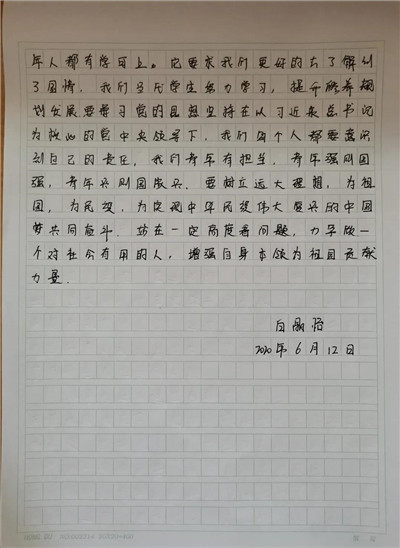 年人都有学习上。它要求我们更好的去了解到
了国情，我们当代学生努力学习，提升素养规
划发展要学习党的思想坚持在以习近平总书记
为核心的党中央领导下，我们每个人都要意识
到自己的责任，我们青年有担当，青年强则国
强，青年兴则国家兴。要树立远大理想，为祖
国，为民族，为实现中华民族伟大复兴的中国
梦共同奋斗。站在一定高度看问题，力争做一
个对社会有用的人，增强自身本领为祖国贡献
力量。
2020年6月12日